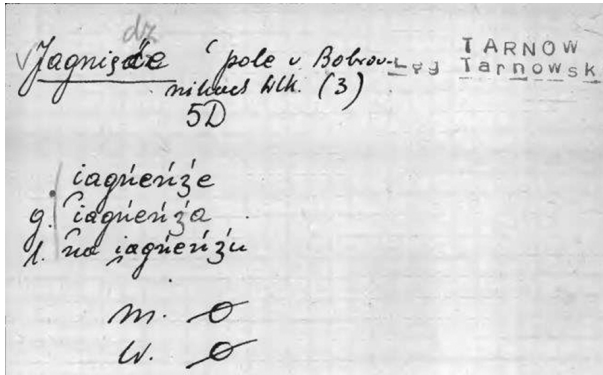 dz
Jagnięcie ʻpole v. Bobrow-
nikach Wlk. (3)
5D
TARNÓW
Łęg Tarnowsk
i̯agńeńʒ́e
g. i̯agńeńʒ́a
l. na i̯agńeńʒ́u
m. ø
w. ø